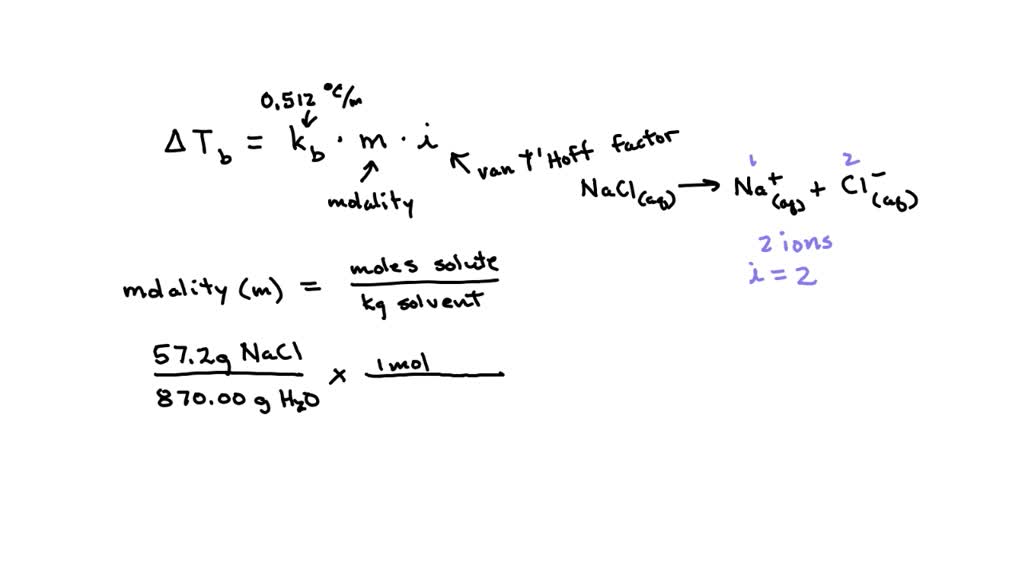 0.512 °C/m
ΔT_b = k_b · m · i
van't Hoff factor
molality
NaCl(aq) → Na⁺(aq) + Cl⁻(aq)
1 2
2 ions
i = 2
molality (m) = moles solute / kg solvent
57.2g NaCl / 870.00 g H₂O × 1 mol /